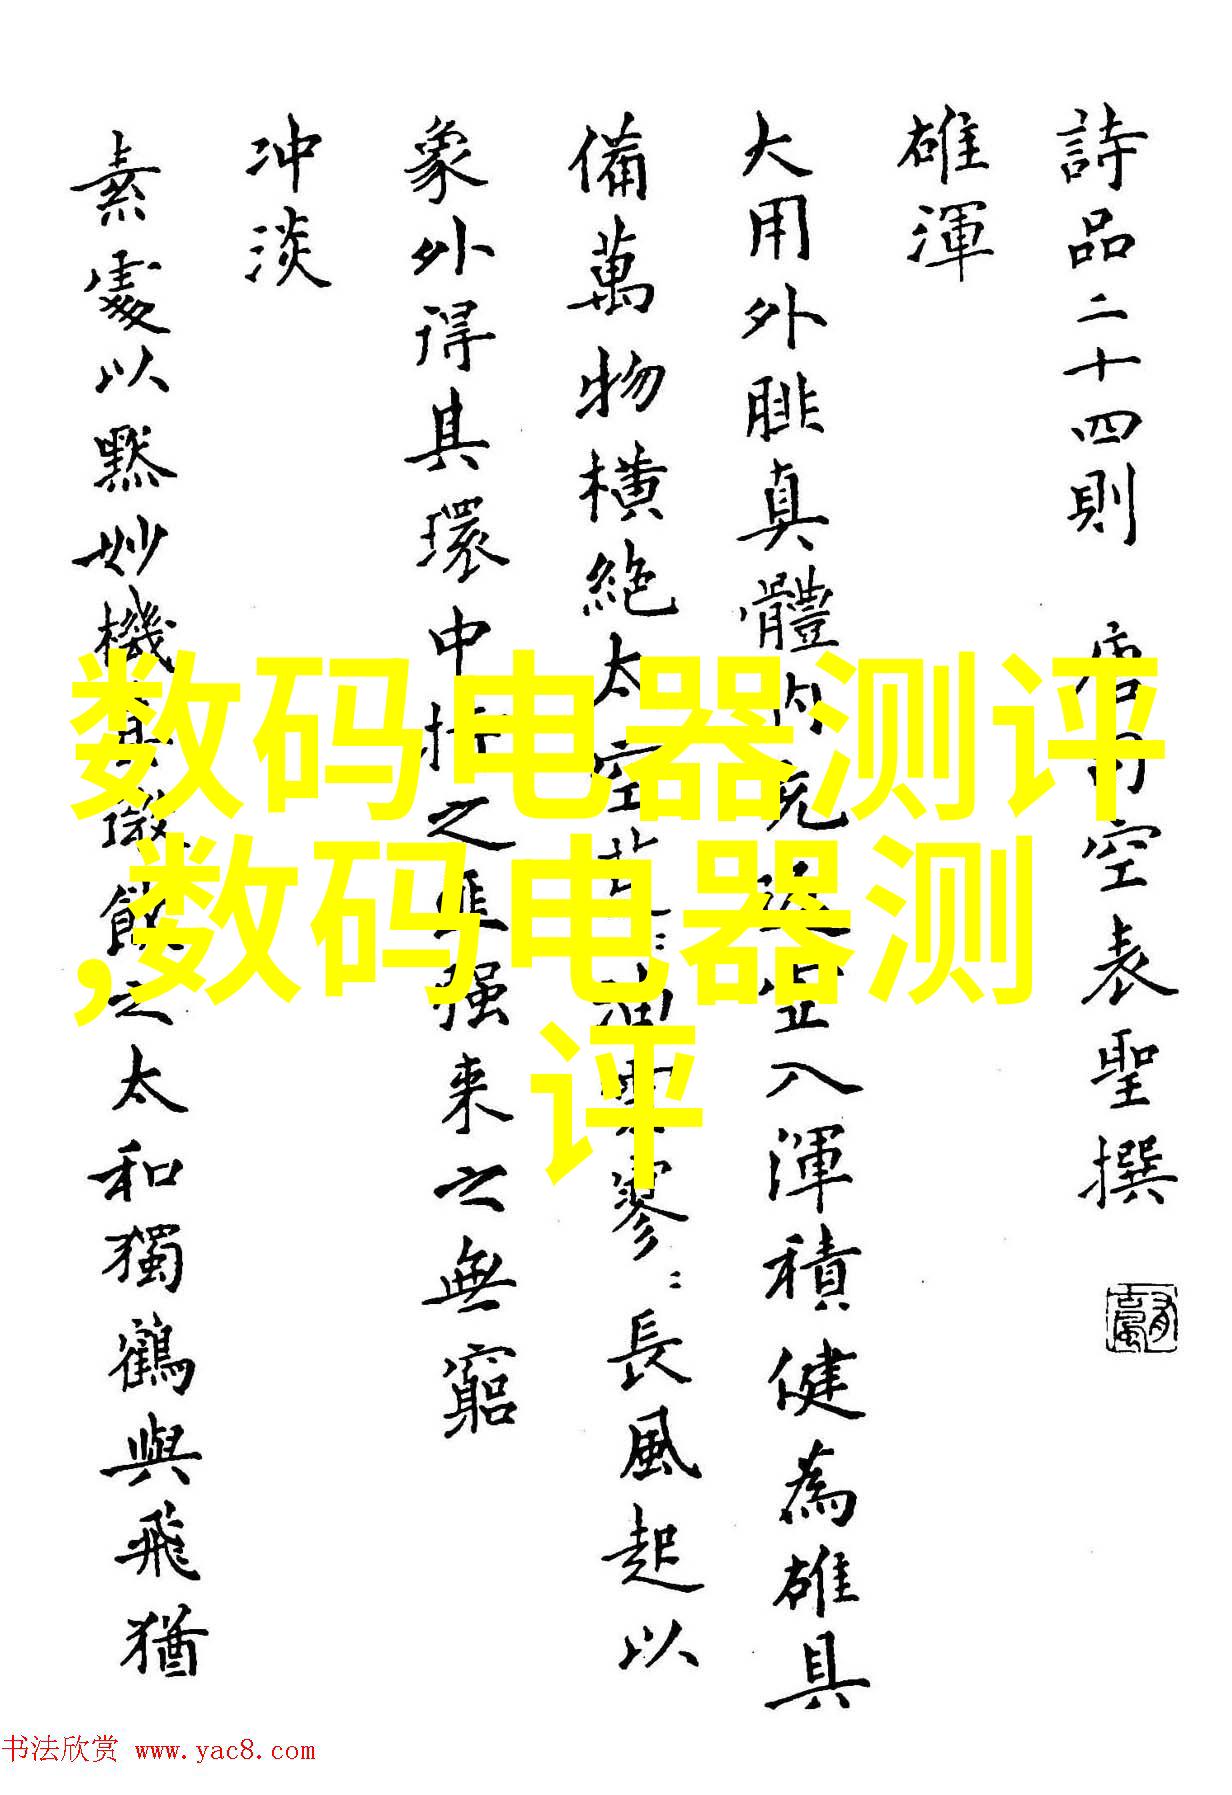 詩品二十四則 唐司空表聖撰
雄渾
大用外腓真體内充返虛入渾積健為雄具
備萬物橫絶太空荒〻油雲寥〻長風起以
象外得其環中持之匪强来之無窮
冲淡
素處以默妙機其微飲之太和獨鶴與飛猶
数码电器测评
,数码电器测
评
书法欣赏 www.yac8.com